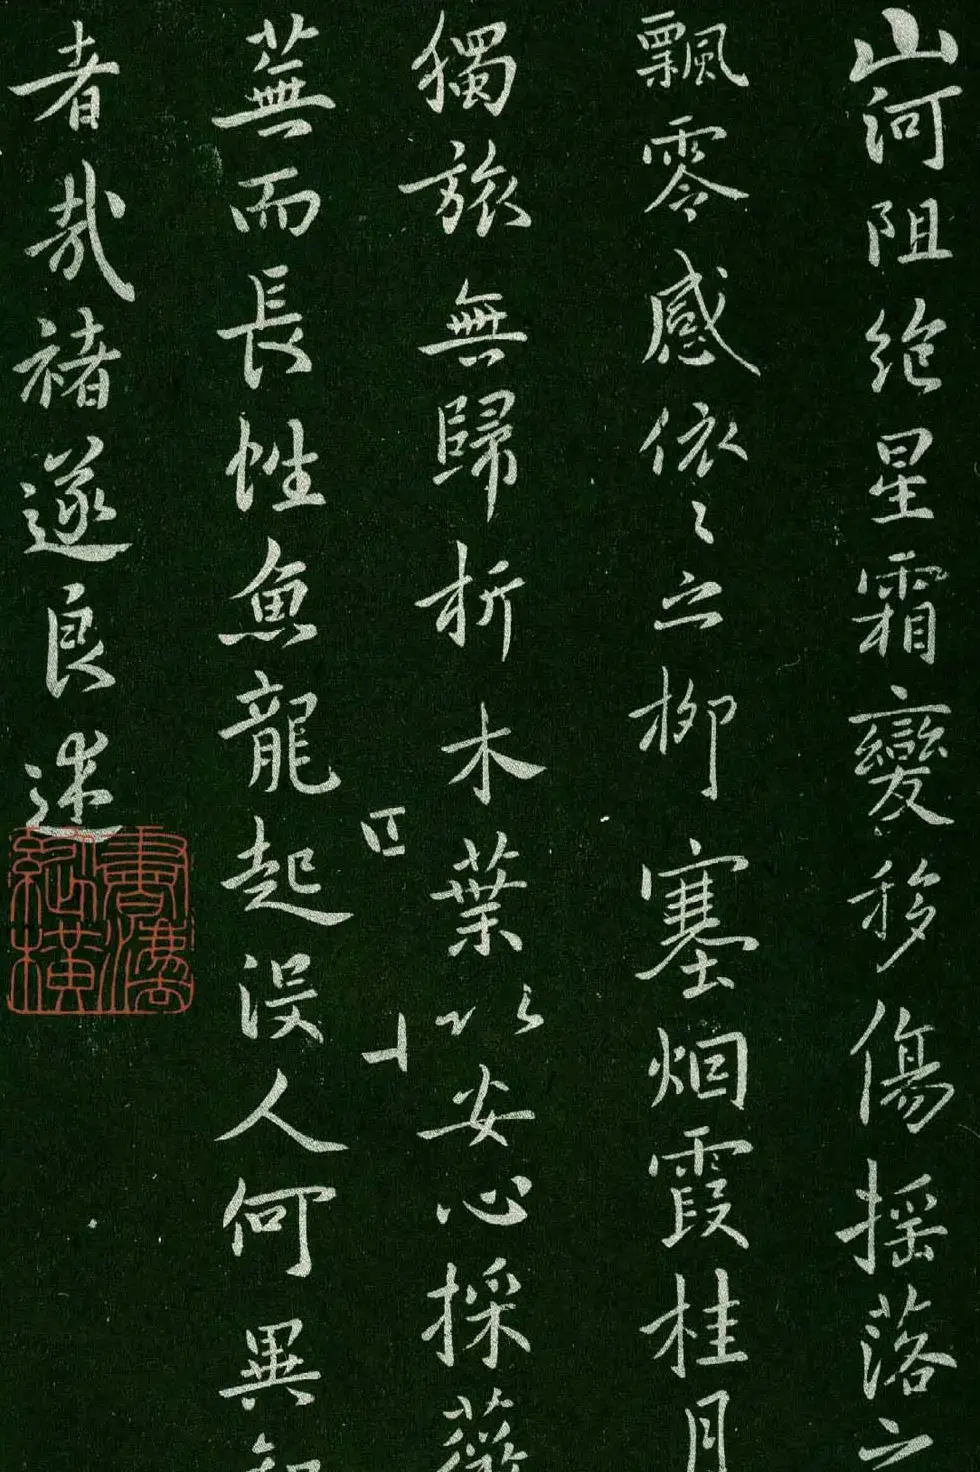 山河阻絶星霜變移傷揺落之
飄零感依々之柳塞烟霞桂月
獨旅無歸折木葉以安心採薇
蕪而長性魚龍起没人何異知
者哉褚遂良述
書灋
縱橫